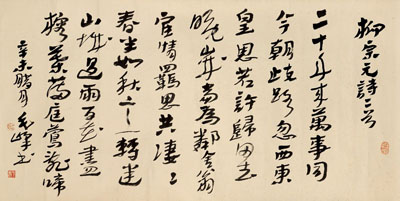 柳宗元詩二首
二十年來萬事同
今朝歧路忽西東
皇恩若許歸田去
晚歲當為鄰舍翁
宦情羈思共淒〻
春半如秋意轉迷
山城過雨百花盡
榕葉滿庭鶯亂啼
辛未臘月 峰书